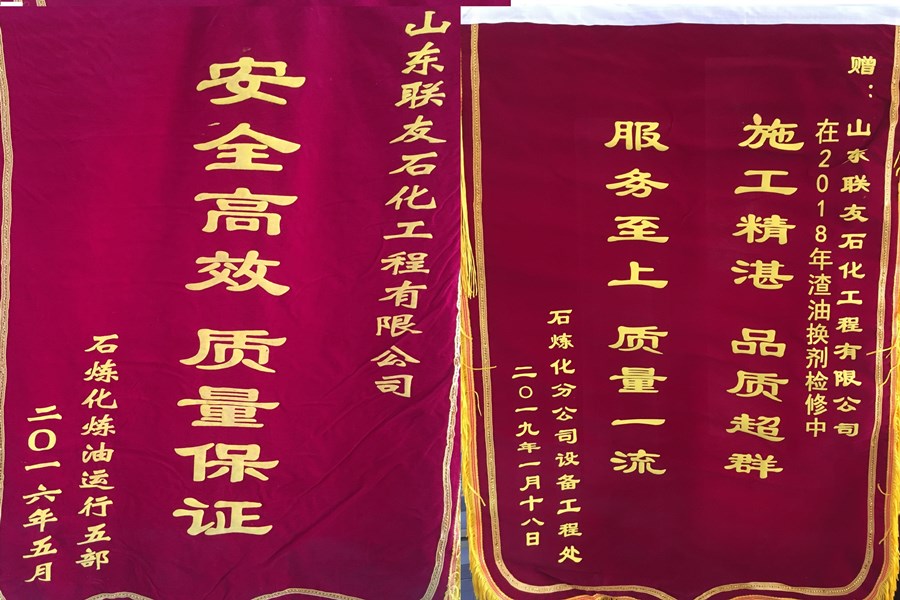 山东联友石化工程有限公司
安全高效 质量保证
石炼化炼油运行五部
二〇一六年五月
赠：
山东联友石化工程有限公司
在2018年渣油换剂检修中
施工精湛 品质超群
服务至上 质量一流
石炼化分公司设备工程处
二〇一九年一月十八日